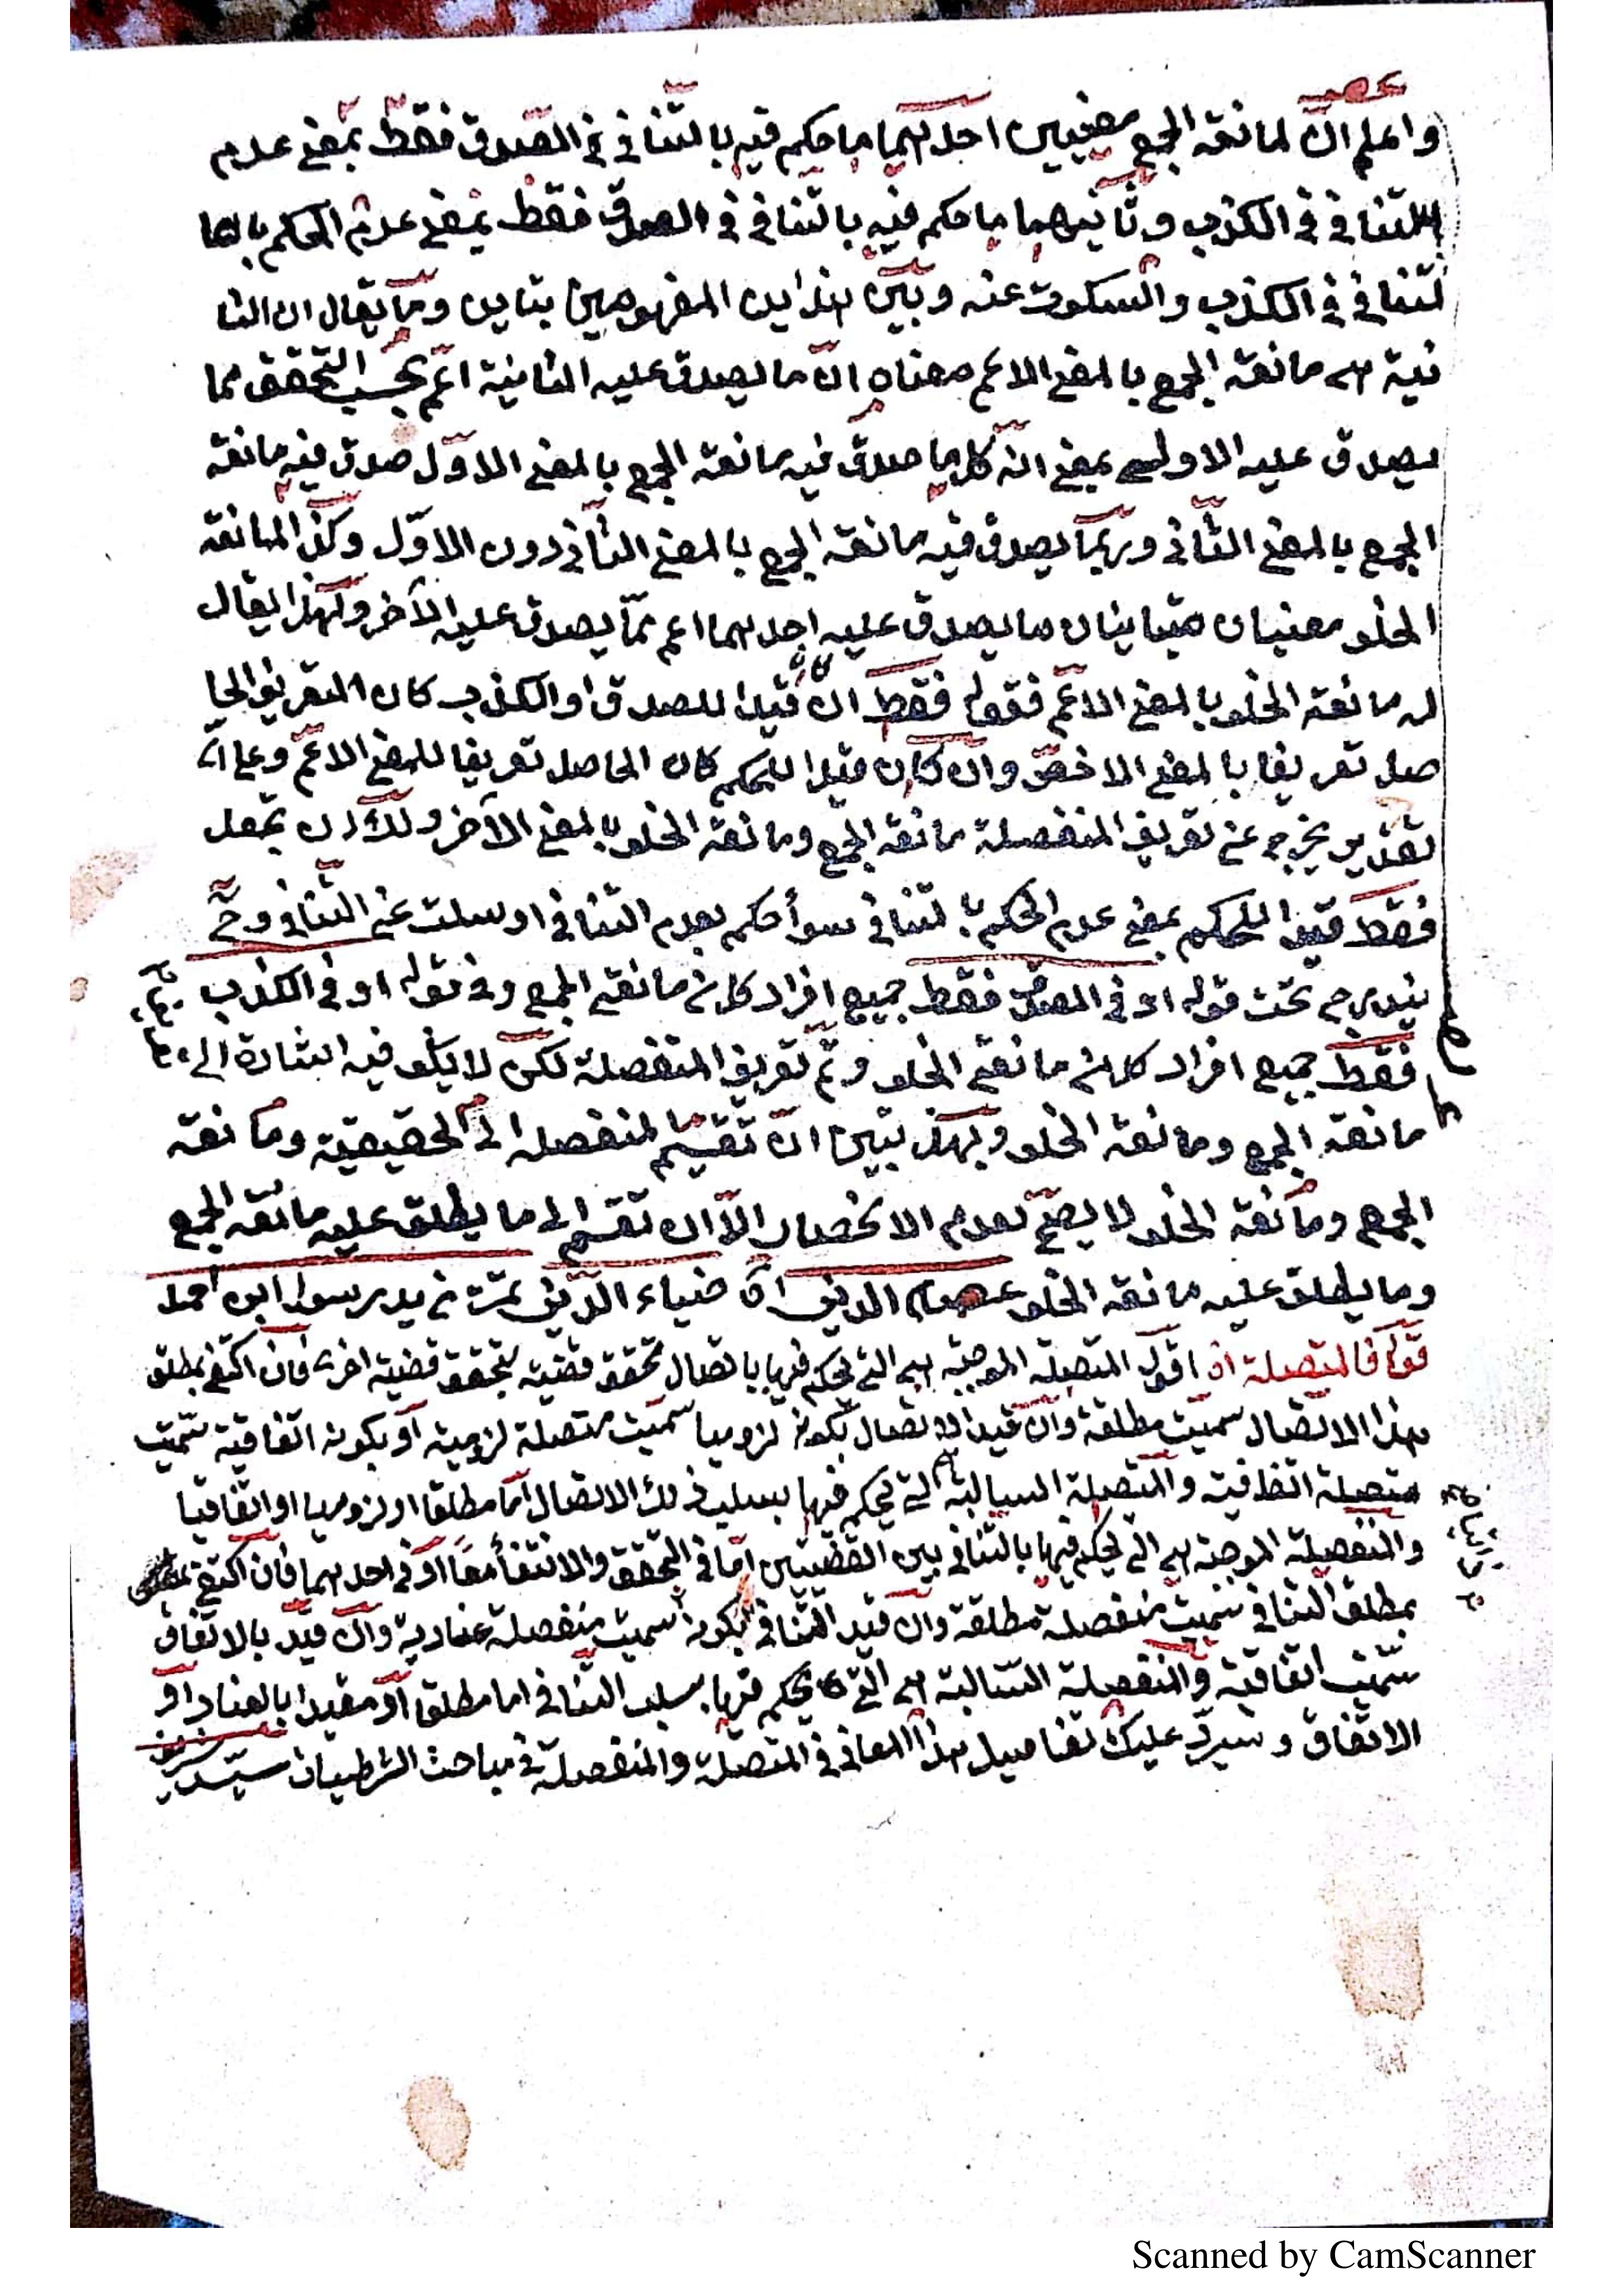 عصـ
واعلم ان لمانعة الجمع معنيين احدهما ما حكم فيه بالتنافى فى الصدق فقط بمعنى عدم
التنافى فى الكذب وثانيهما ما حكم فيه بالتنافى فى الصدق فقط بمعنى عدم الحكم با
لتنافى فى الكذب والسكوت عنه وبين هذين المفهومين تباين وما يقال ان الثا
نية هى مانعة الجمع بالمعنى الاعم معناه ان ما يصدق عليه الثانية اعم بحسب التحقق مما
يصدق عليه الاولى بمعنى انه كل ما صدق فيه مانعة الجمع بالمعنى الاول صدق فيه مانعة
الجمع بالمعنى الثانى وربما يصدق فيه مانعة الجمع بالمعنى الثانى دون الاول وكذا لمانعة
الخلو معنيان متباينان ما يصدق عليه احدهما اعم مما يصدق عليه الآخر ولهذا يقال
له مانعة الخلو بالمعنى الاعم فقوله فقط ان كان قيدا للصدق او الكذب كان التعريف الحا
صل تعريفا بالمعنى الاخص وان كان قيدا للحكم كان الحاصل تعريفا للمعنى الاعم وعلى اى
تقدير يخرج عن تعريف المنفصلة مانعة الجمع ومانعة الخلو بالمعنى الآخر ولك ان تجعل
فقط قيدا للحكم بمعنى عدم الحكم بالتنافى سوأ حكم بعدم التنافى او سكت عن التنافى وح
يندرج تحت قوله او فى الصدق فقط جميع افراد كلا من مانعتى الجمع وفى قوله او فى الكذب
فقط جميع افراد كلا من مانعتى الخلو وتم تعريف المنفصلة لكن لا يكون فيه اشارة الى
مانعة الجمع ومانعة الخلو وبهذا تبين ان تقسيم المنفصلة الى الحقيقية ومانعة
الجمع ومانعة الخلو لا يصح لعدم الانحصار الا ان تقسم الى ما يطلق عليه مانعة الجمع
وما يطلق عليه مانعة الخلو عصام الدين ضياء الدين تمت رسول ابن احمد
قوله فالمتصلة اقول المتصلة الموجبة هى التى يحكم فيها باتصال تحقق قضية بتحقق قضية اخرى فان اكتفى بمطلق
هذا الاتصال سميت مطلقة وان قيد الاتصال بكونه لزوميا سميت متصلة لزومية او بكونه اتفاقية سميت
متصلة اتفاقية والمتصلة السالبة هى التى يحكم فيها بسلب ذلك الاتصال اما مطلقا او لزوميا او اتفاقيا
والمنفصلة الموجبة هى التى يحكم فيها بالتنافى بين القضيتين اما فى التحقق والانتفأ معا او فى احدهما فان اكتفى
بمطلق التنافى سميت منفصلة مطلقة وان قيد التنافى بكونه سميت منفصلة عنادية وان قيد بالاتفاق
سميت اتفاقية والمنفصلة السالبة هى التى يحكم فيها بسلب التنافى اما مطلقا او مقيدا بالعناد او
الاتفاق وسيرد عليك تفاصيل هذا المعانى فى المتصلة والمنفصلة فى مباحث الشرطيات سيد شريف
Scanned by CamScanner